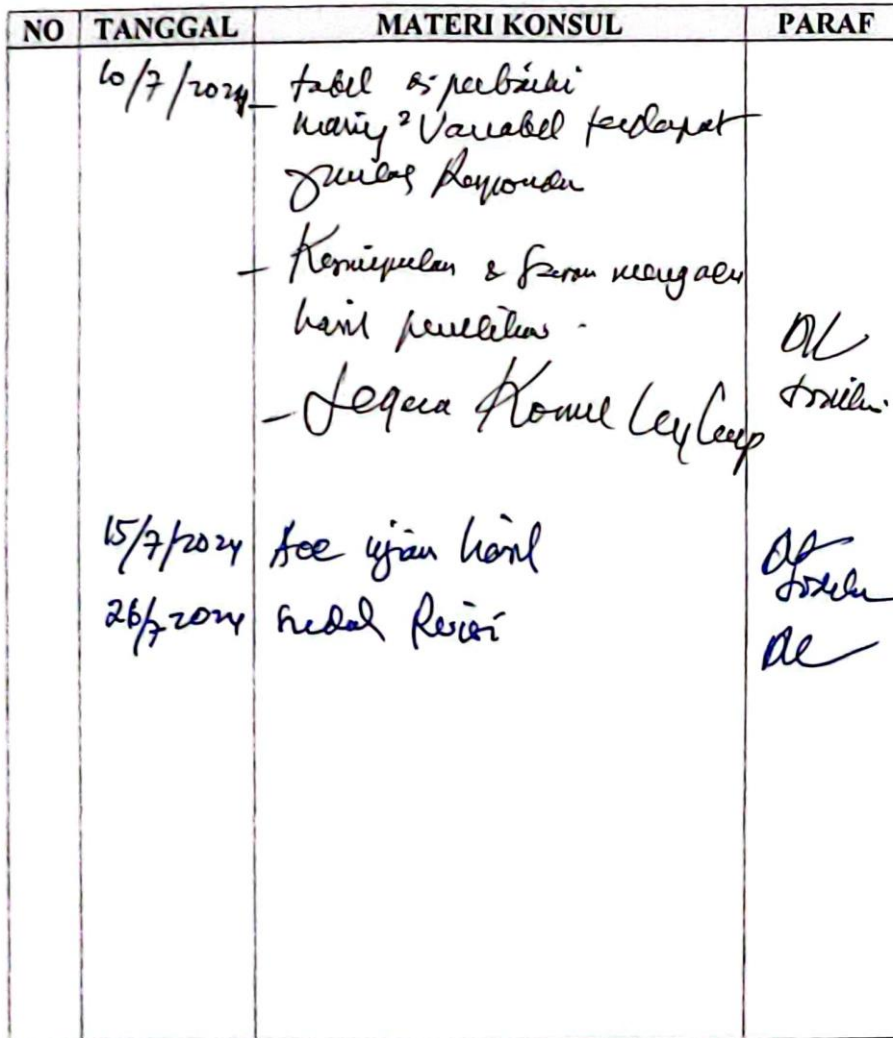 NO TANGGAL MATERI KONSUL PARAF
10/7/2024 - tabel di perbaiki
masing² Variabel terdapat
jumlah Responden
- Kesimpulan & Saran mengacu
hasil penelitian.
- Segera Konsul Lengkap
15/7/2024 Acc ujian hasil
26/7 2024 sudah Revisi